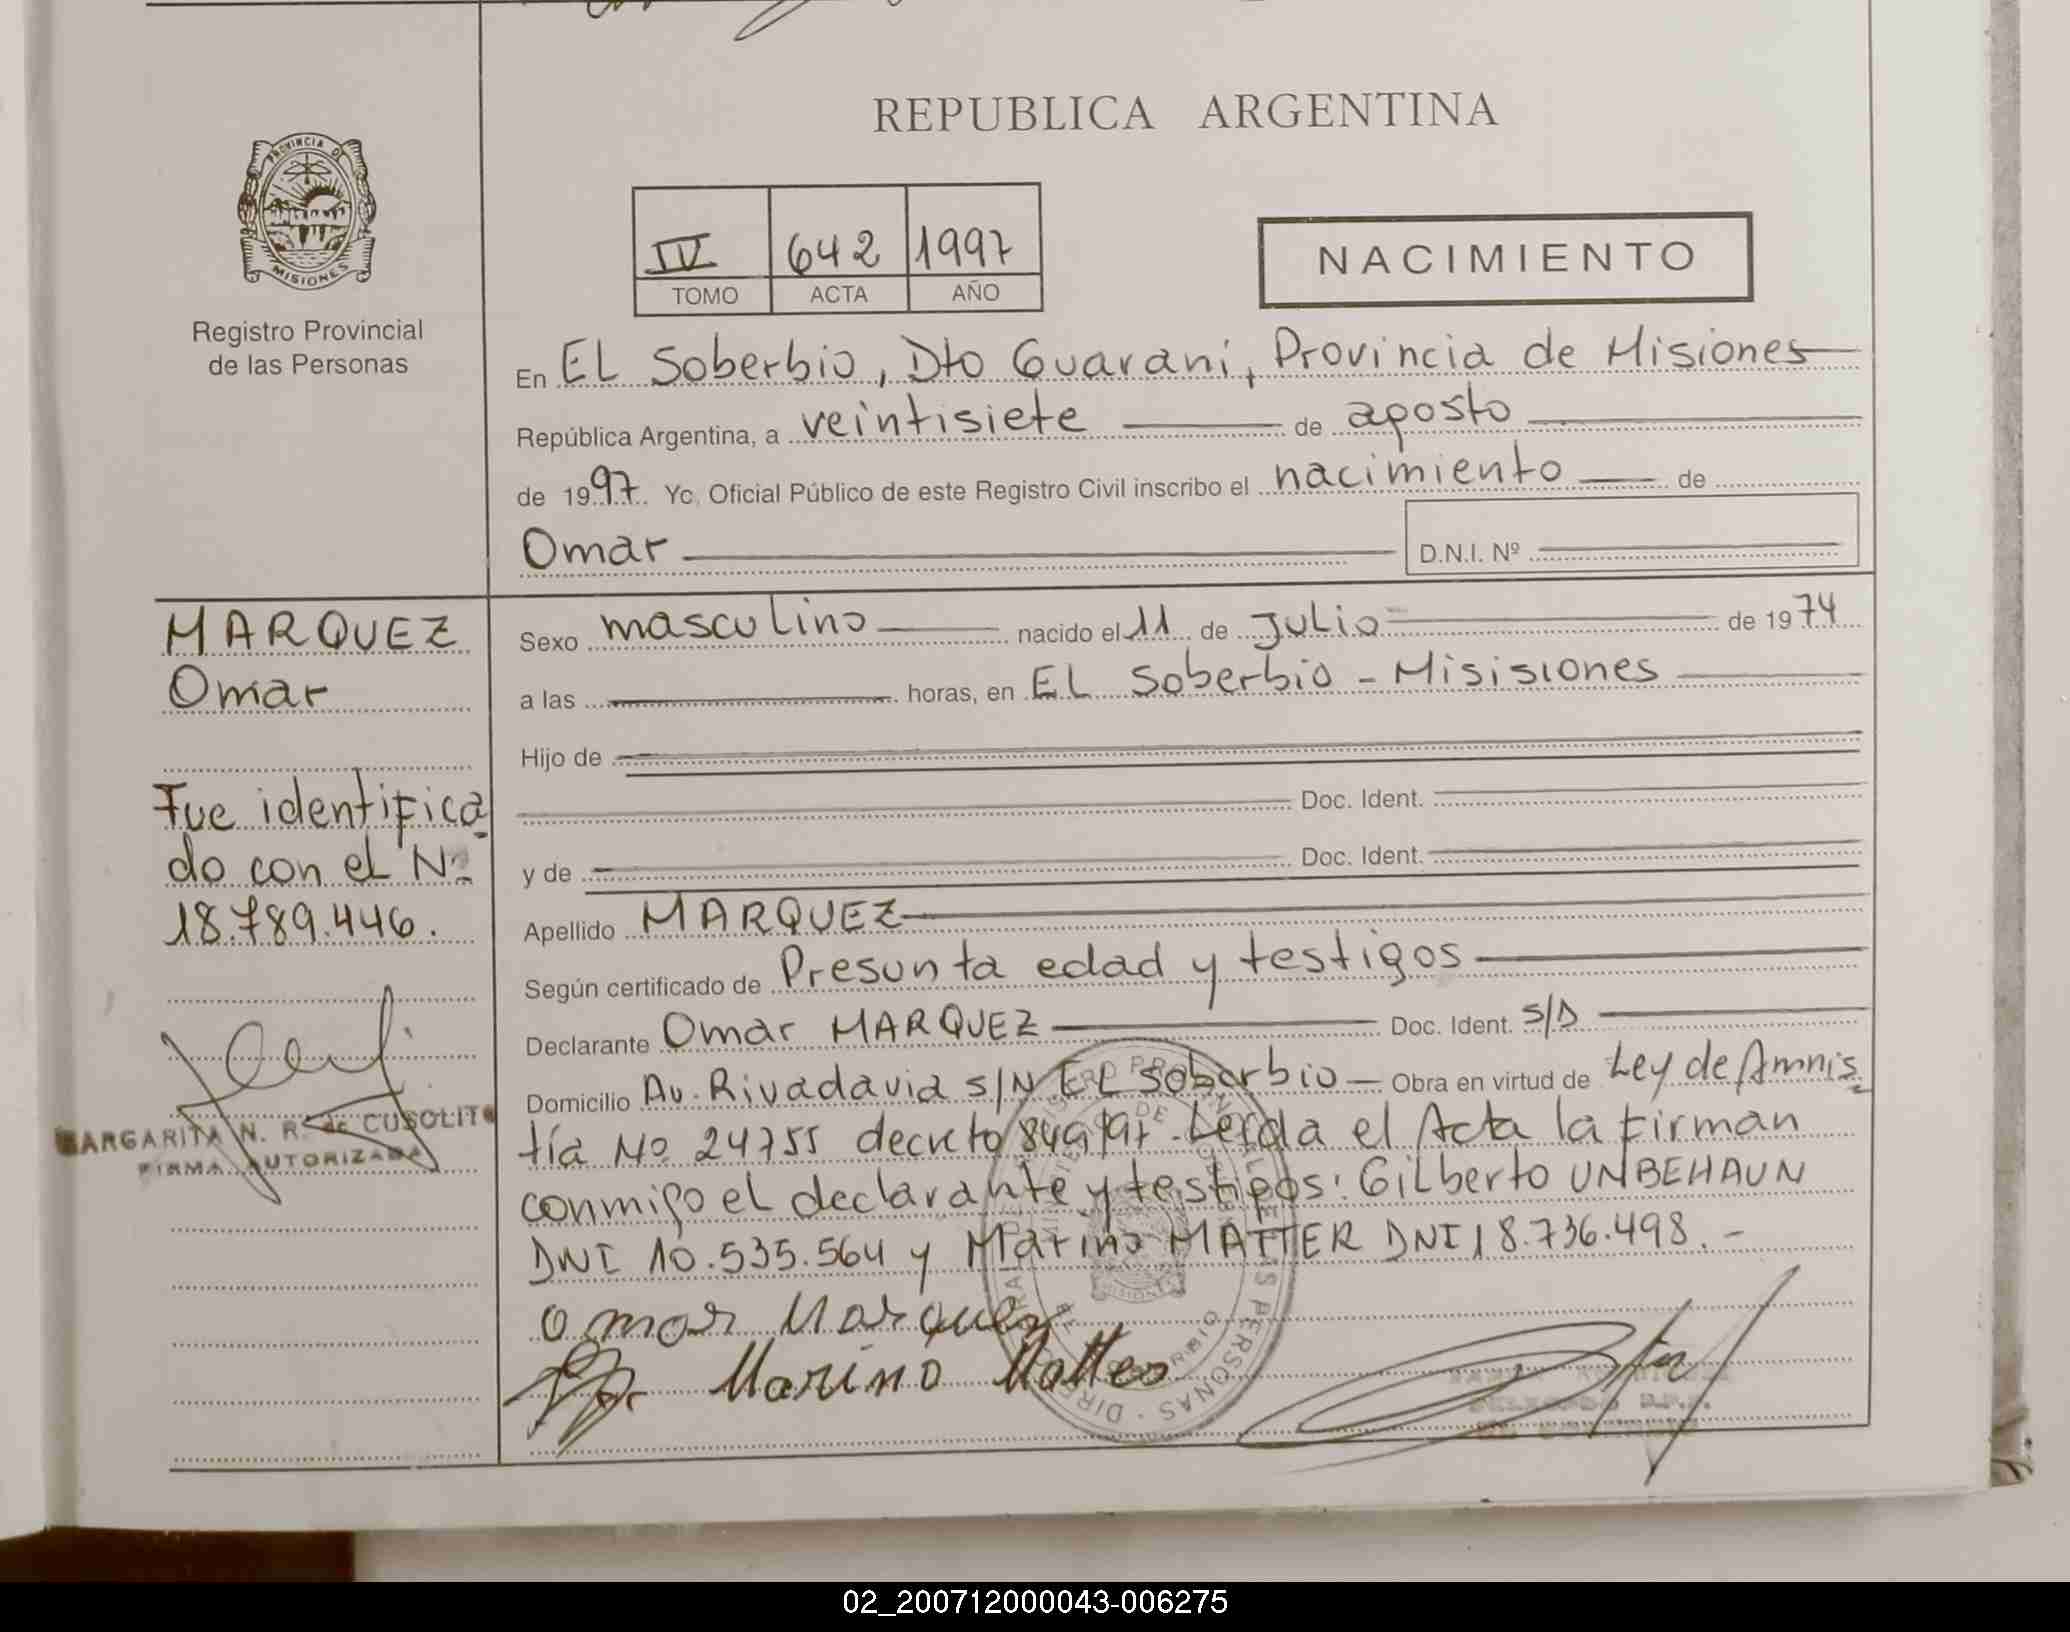 REPUBLICA ARGENTINA
PROVINCIA DE
MISIONES
Registro Provincial
de las Personas
IV 642 1997
TOMO ACTA AÑO
NACIMIENTO
En EL Soberbio, Dto Guaraní, Provincia de Misiones
República Argentina, a veintisiete de agosto
de 1997. Yo, Oficial Público de este Registro Civil inscribo el nacimiento de
Omar D.N.I. Nº
MARQUEZ
Omar
Fue identifica
do con el Nº
18.789.446.
MARGARITA N. R. de CUSOLITO
FIRMA AUTORIZADA
Sexo masculino nacido el 11 de Julio de 1974
a las horas, en EL Soberbio - Misisiones
Hijo de
Doc. Ident.
y de Doc. Ident.
Apellido MARQUEZ
Según certificado de Presunta edad y testigos
Declarante Omar MARQUEZ Doc. Ident. S/D
Domicilio Av. Rivadavia s/N EL Soberbio Obra en virtud de Ley de Amnis
tía Nº 24755 decreto 849/97. Leída el Acta la firman
conmigo el declarante y testigos: Gilberto UNBEHAUN
DNI 10.535.564 y Marino MATTER DNI 18.736.498. -
Omar Marquez
Marino Matter
02_200712000043-006275